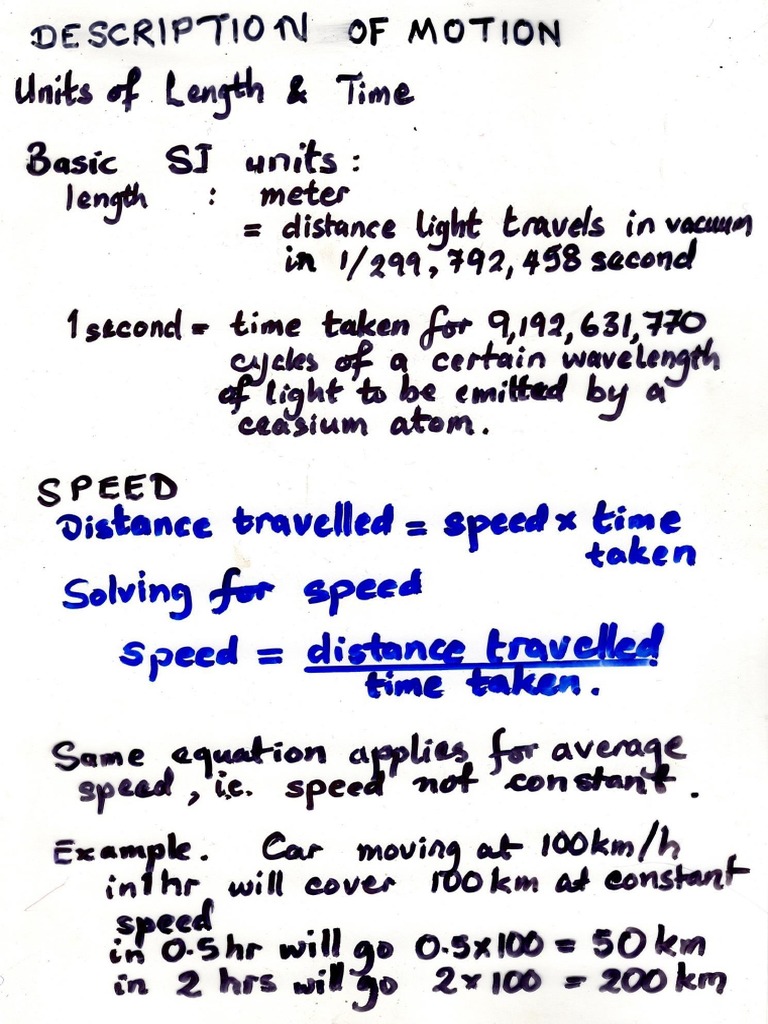 DESCRIPTION OF MOTION
Units of Length & Time
Basic SI units:
length : meter
= distance light travels in vacuum
in 1/299,792,458 second
1 second = time taken for 9,192,631,770
cycles of a certain wavelength
of light to be emitted by a
ceasium atom.
SPEED
Distance travelled = speed × time
taken
Solving for speed
speed = distance travelled
time taken.
Same equation applies for average
speed, i.e. speed not constant.
Example. Car moving at 100km/h
in 1hr will cover 100km at constant
speed
in 0.5hr will go 0.5×100 = 50 km
in 2 hrs will go 2×100 = 200 km